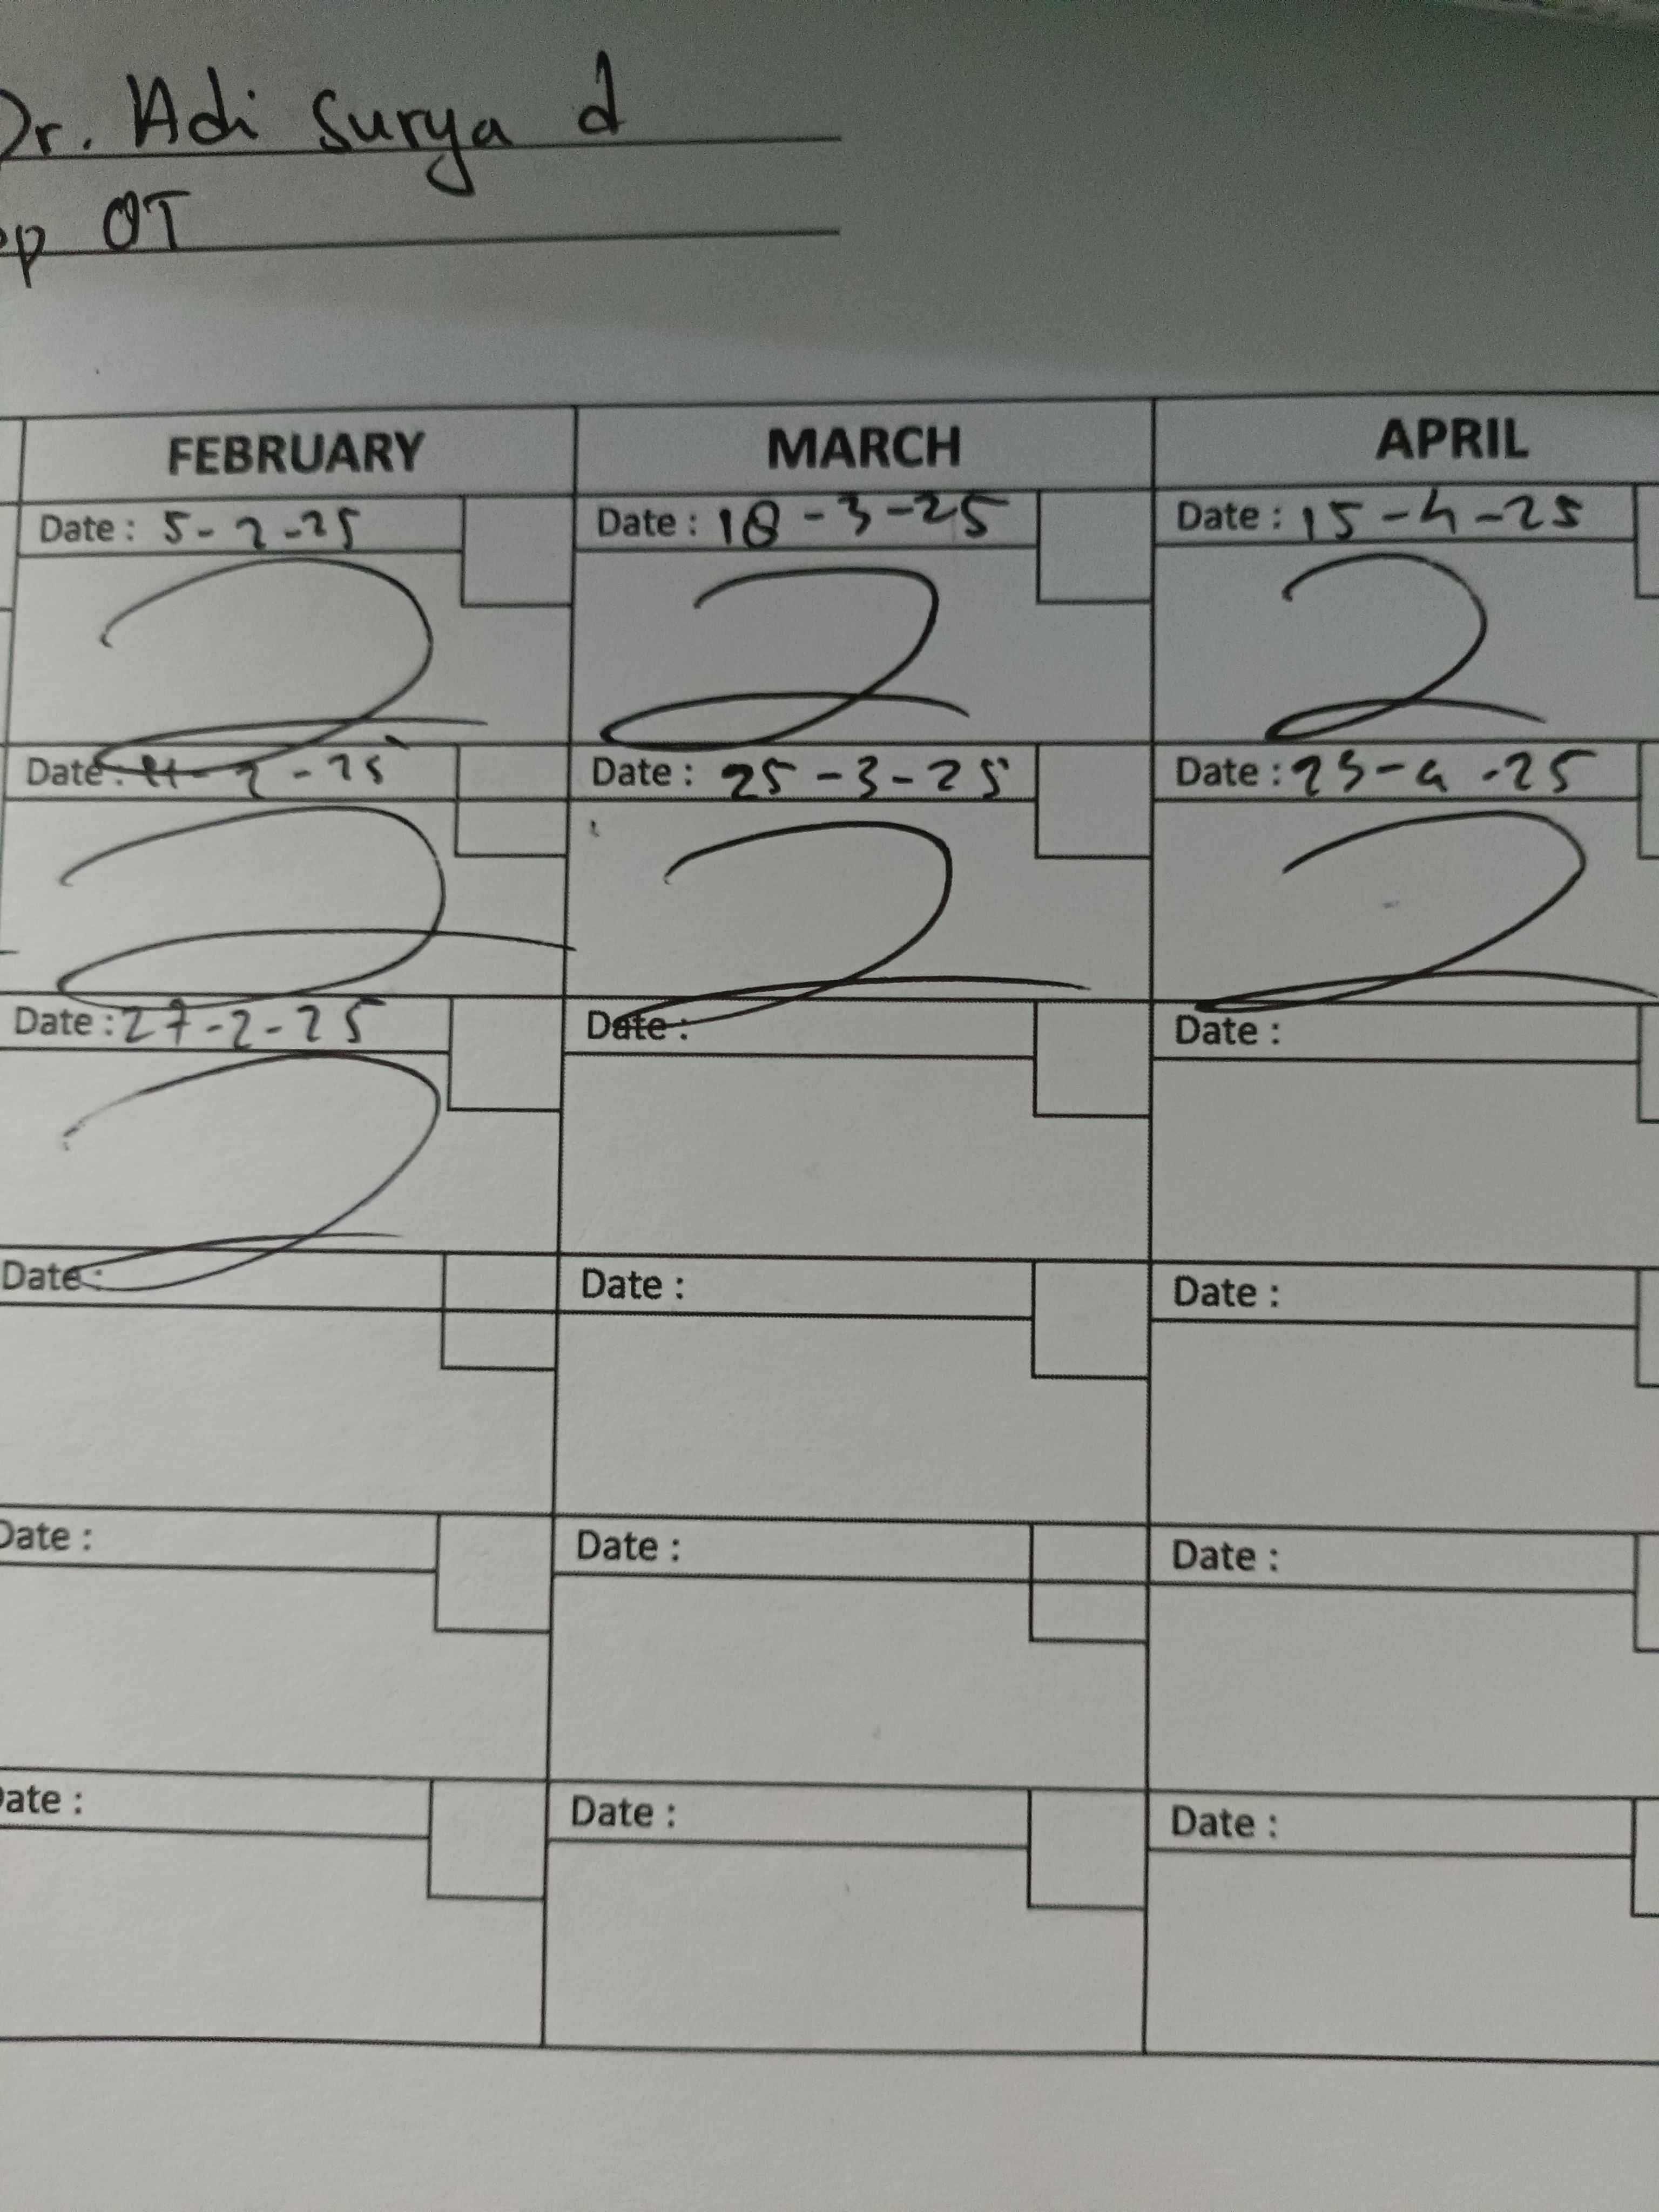 Dr. Adi Surya d
OT
FEBRUARY MARCH APRIL
Date : 5-2-25 Date : 18-3-25 Date : 15-4-25
Date : -2-25 Date : 25-3-25 Date : -4-25
Date : 27-2-25 Date : Date :
Date : Date : Date :
Date : Date : Date :
Date : Date : Date :